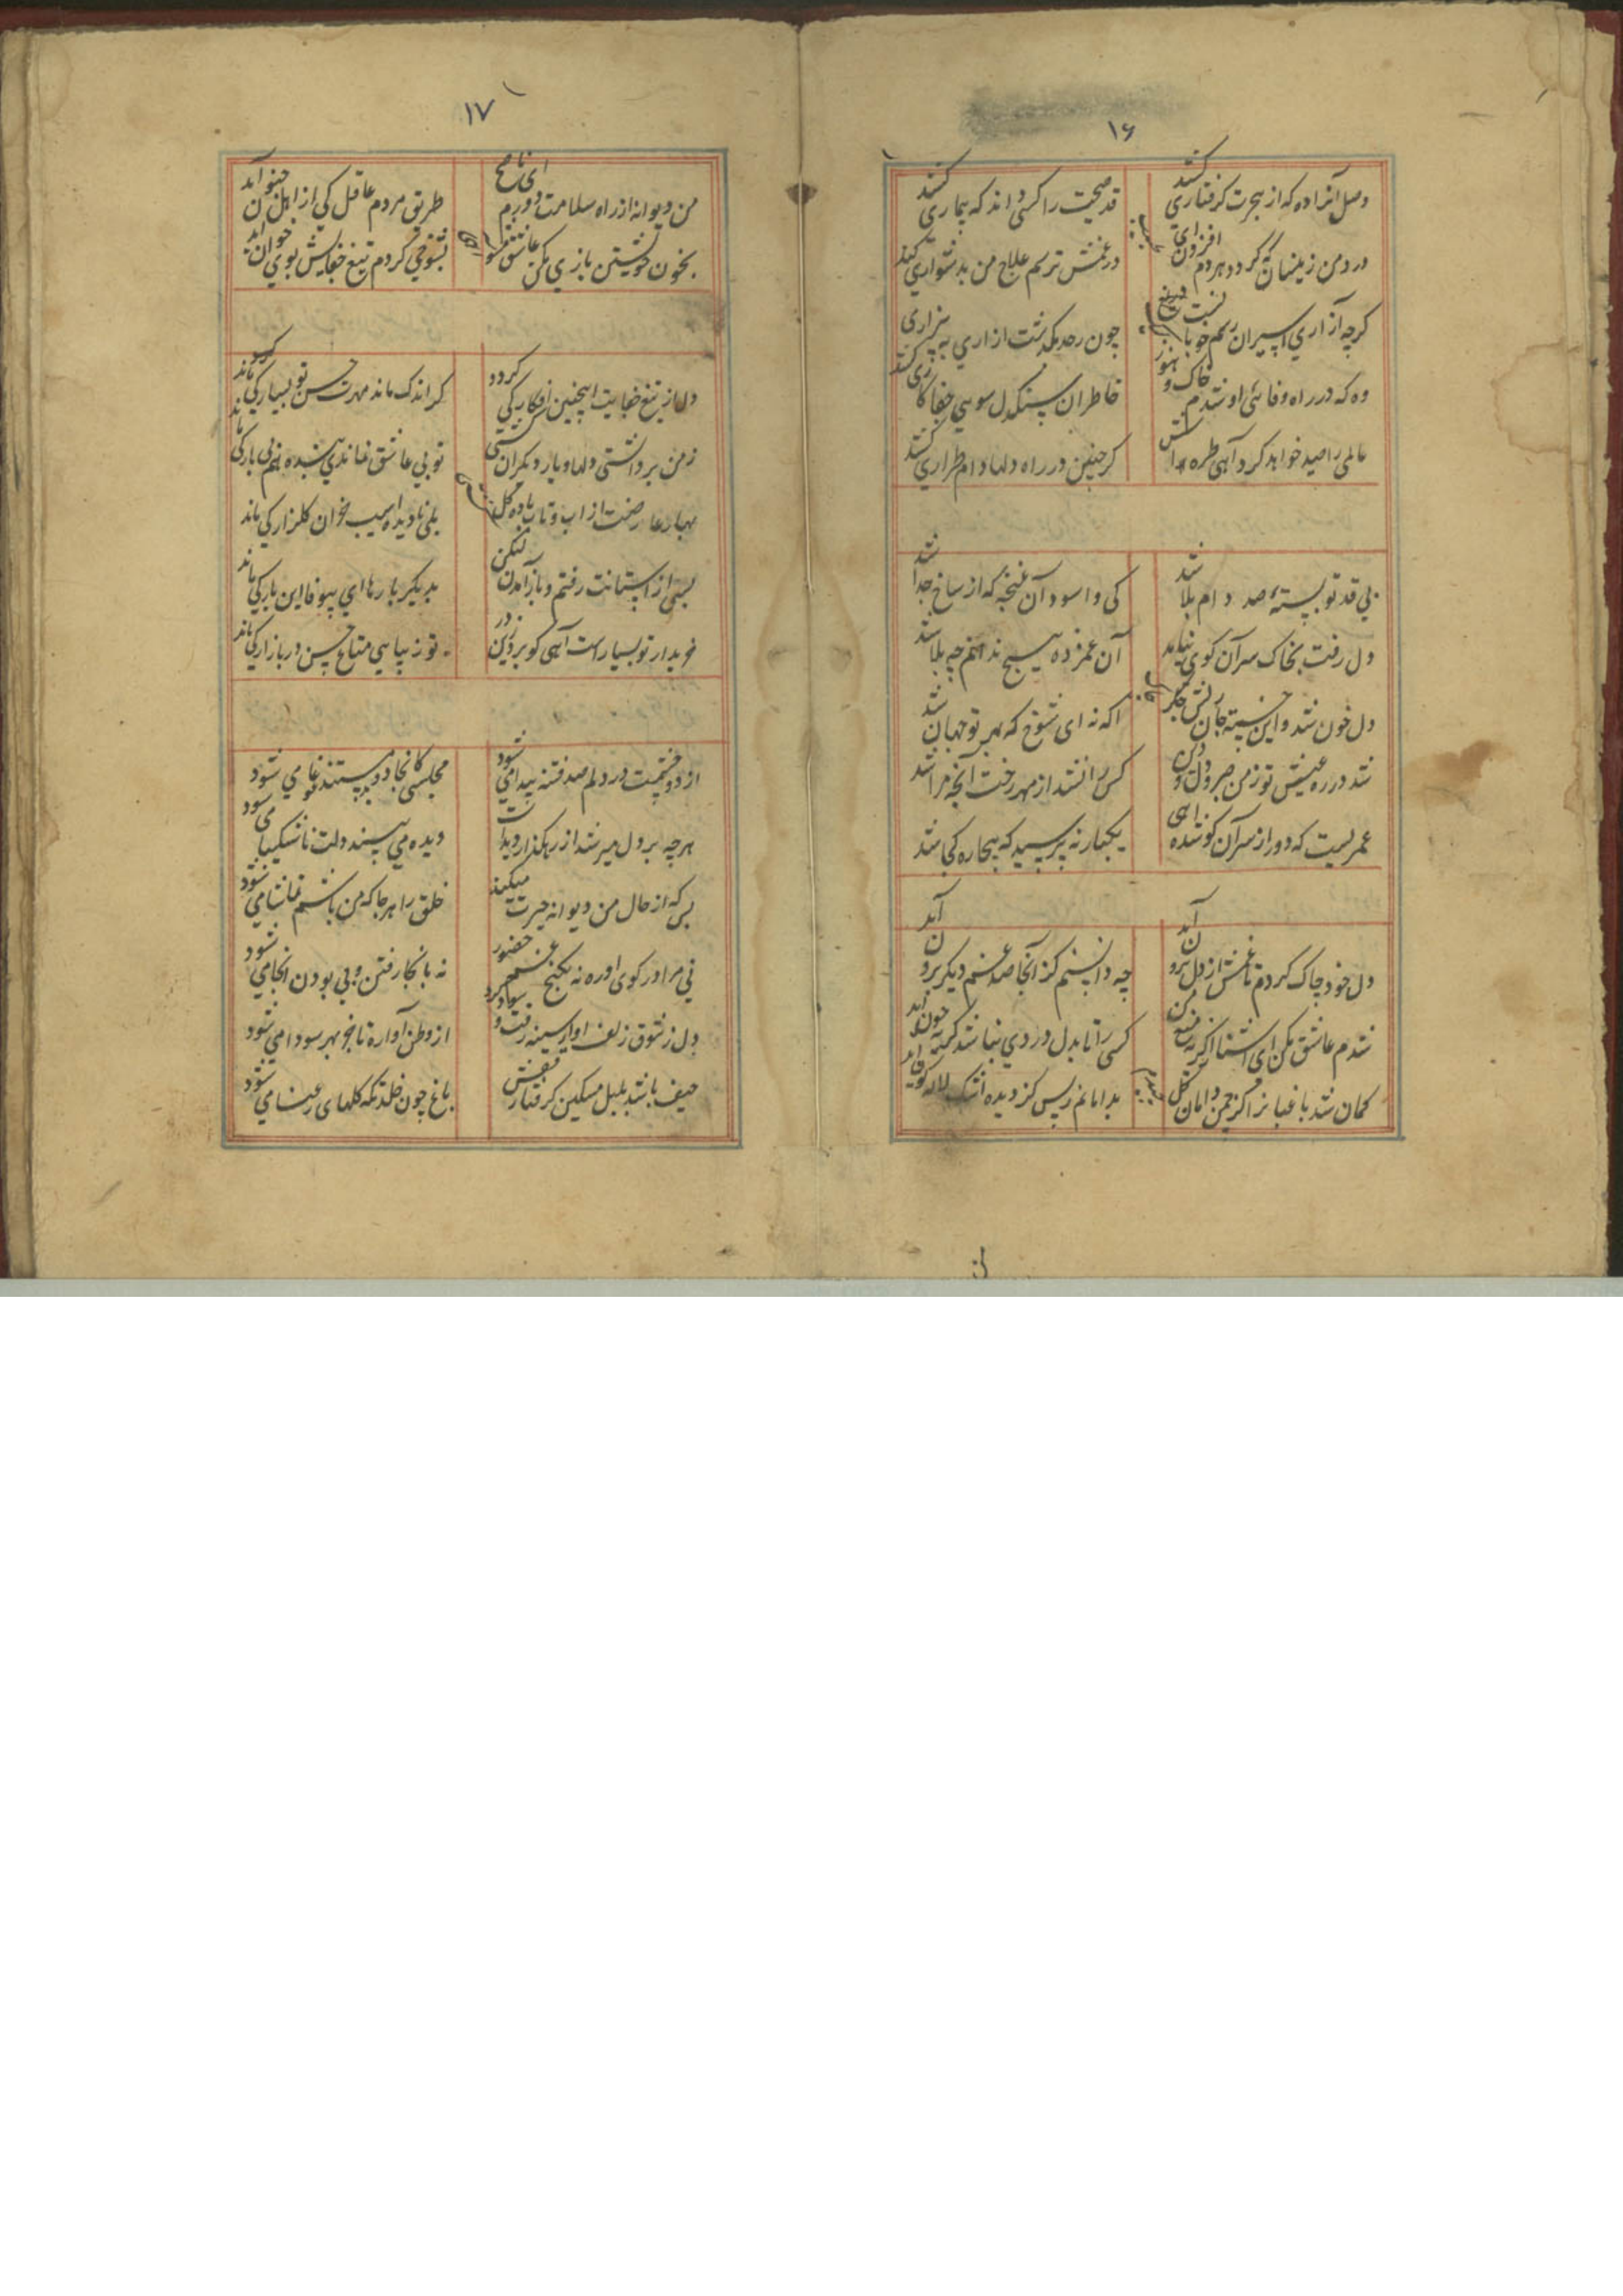 ۱۶
وصل آنرا ده که از هجرت گرفتاری کشد
قدر صحت را کسی داند که بیماری کشد
درد من زینسان که گردد هر دم افزون ای
در غمش ترسم علاج من بدشواری کشد
گرچه آزار اسیران رسم خوبانست
چون ز حد بگذشت ازاری به بیزاری
وه که در راه وفایی او شدم خاک و هنوز
خاطر آن سنگدل سوی جفاکاری کشد
عالمی را صید خواهد کرد آهی طره اش
گر چنین در راه دلها دام طراری کشد
بی قد تو بستهٔ صد دام بلا شد
کی واسود آن غنچه که از شاخ جدا شد
دل رفت بخاک سر آن کوی نیامد
آن غمزده هیچ ندانم چه بلا شد
دل خون شد و این خسته جان ریش جگر
اگه نه ای شوخ که بهر تو جهان شد
شد در ره عشق تو ز من صبر و دل و دین
کس را نشد از مهر رخت آنچه مرا شد
عمریست که دور از سر آن کو شده آهی
یکبار نه پرسید که بیچاره کجا شد
دل خود چاک کردم تا غمش از دل برون آید
چه دانستم کز آنجا صد غم دیگر برون آید
شدم عاشق مکن ای آشنا از گریه منع من
کسی را تا بدل دردی نباشد گریه چون آید
گمان شد باغبانرا کز چمن دامان گل
بدامانم ز بس کز دیده اشک لاله گون آید
۱۷
من دیوانه از راه سلامت دورم ای ناصح
طریق مردم عاقل کی از اهل جنون آید
بخون خویشتن بازی مکن عاشق مشو
بشوخی کردم تیغ جفایش بوی خون آید
دل از تیغ جفایت اینچنین افکار کی گردد
گر اندک ماند مهرت حسن تو بسیار کی ماند
ز من برداشتی دل با و یار دیگران
تو بی عاشق نماندی بنده هم بی یار کی ماند
بهار عارضت از اب و تاب باده گل
بلی نادیده اسیب خزان گلزار کی ماند
بسی از استانت رفتم و باز آمدن لیکن
بدیگر بارها ای بیوفا این بار کی ماند
خریدار تو بسیارست آهی کو بزودین زر
تو زیبایی متاع حسن در بازار کی ماند
از دو چشمت در دلم صد فتنه پیدا می شود
مجلسی کانجا دو بد مستند غوغا می شود
هر چه بر دل میرشد از رهگذار دیده است
دیده می بیند دلت ناشکیبا می شود
بس که از حال من دیوانه حیرت میکنند
خلق را هر جا که من باشم تماشا می شود
نی مرا در کوی او ره نه بکنج غم حضور
نه بانجا رفتن و بی بودن اینجا می شود
دل ز شوق زلف او از سینه رفت و
از وطن آواره تاجر بهر سودا می شود
حیف باشد بلبل مسکین گرفتار قفس
باغ چون خلد تکه گلهای رعنا می شود